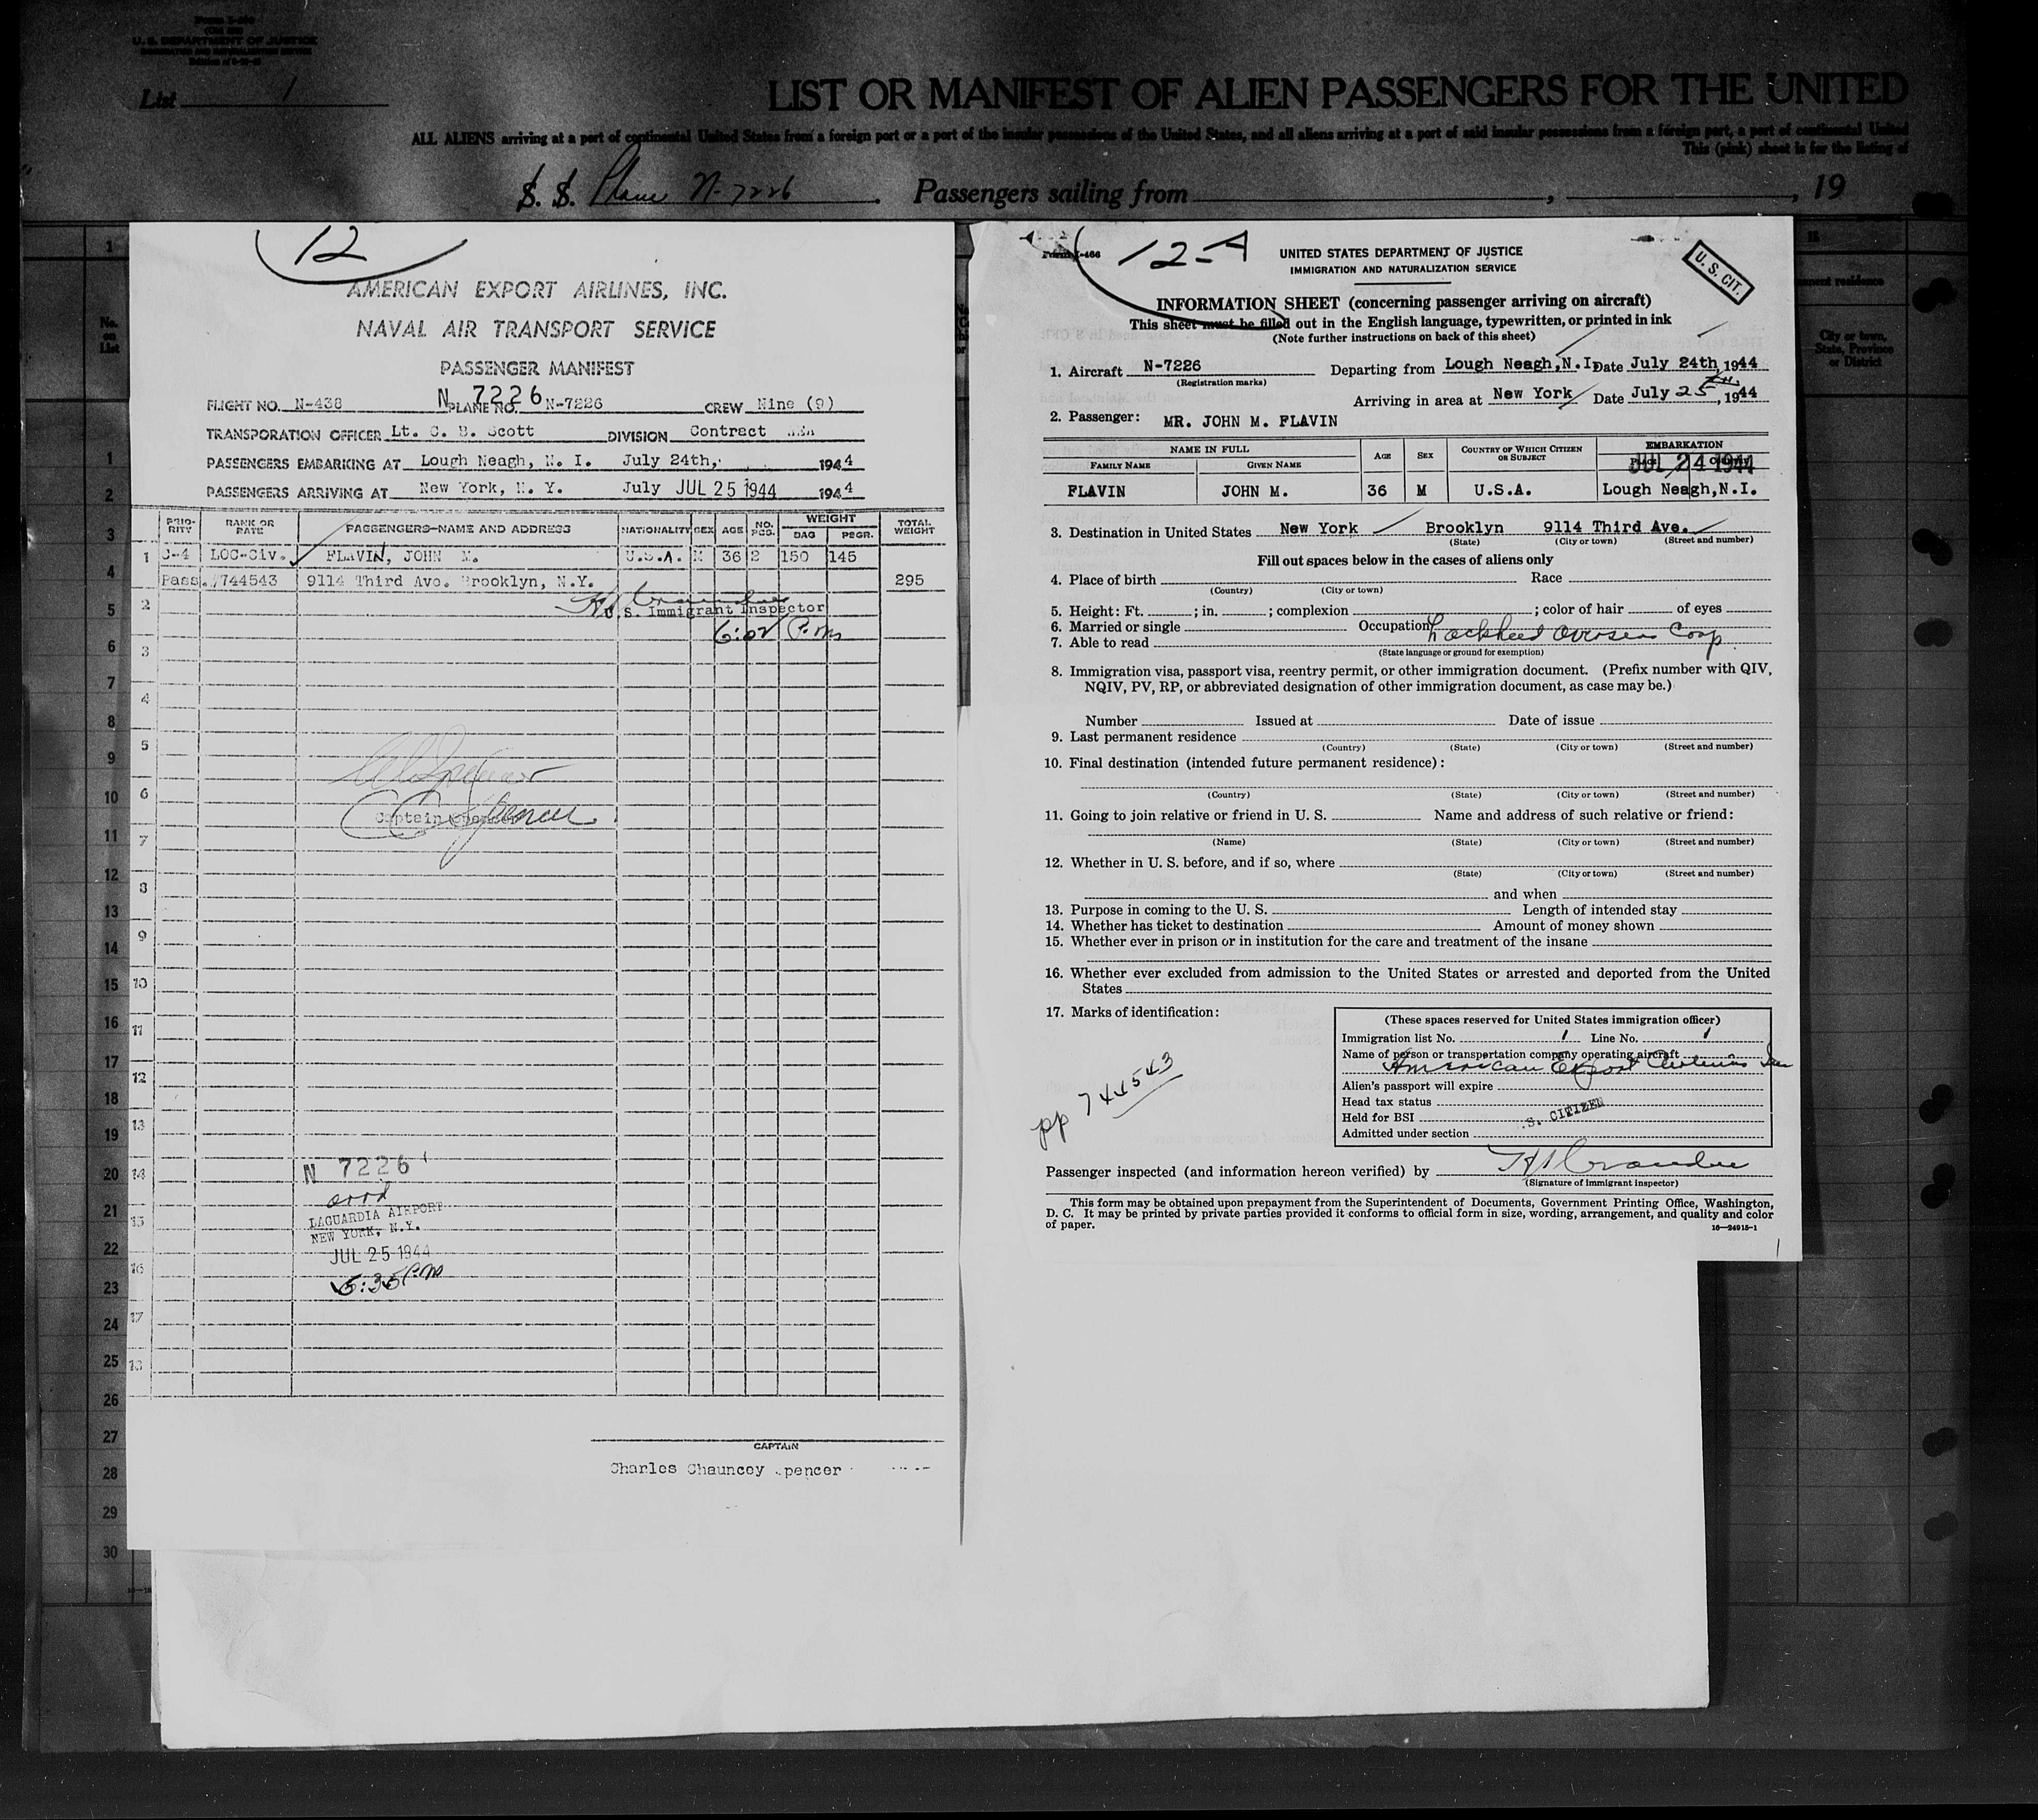 U. S. DEPARTMENT OF JUSTICE
List 1
LIST OR MANIFEST OF ALIEN PASSENGERS FOR THE UNITED
ALL ALIENS arriving at a port of continental United States from a foreign port or a port of the insular possessions of the United States, and all aliens arriving at a port of said insular possessions from a foreign port, a port of continental United
This (pink) sheet is for the listing of
S. S. Plane N-7226. Passengers sailing from , , 19
12
AMERICAN EXPORT AIRLINES, INC.
NAVAL AIR TRANSPORT SERVICE
PASSENGER MANIFEST
N 7226
FLIGHT NO. N-438 PLANE NO. N-7226 CREW Nine (9)
TRANSPORATION OFFICER Lt. C. B. Scott DIVISION Contract
PASSENGERS EMBARKING AT Lough Neagh, N. I. July 24th, 1944
PASSENGERS ARRIVING AT New York, N. Y. July JUL 25 1944 1944
PRIORITY RANK OR RATE PASSENGERS—NAME AND ADDRESS NATIONALITY SEX AGE NO. PCS. WEIGHT BAG PSGR. TOTAL WEIGHT
1 C-4 LOC-Civ. FLAVIN, JOHN M. U.S.A. M 36 2 150 145
Pass. 744543 9114 Third Ave. Brooklyn, N.Y. 295
2 U.S. Immigrant Inspector
6:02 P.M
3
4
5
6
C C Spencer
Captain Spencer
7
8
9
10
11
12
13
14
N 7226
arrd
15
LAGUARDIA AIRPORT
NEW YORK, N.Y.
JUL 25 1944
16
5:35 PM
17
18
CAPTAIN
Charles Chauncey Spencer
12-A
Form I-466
UNITED STATES DEPARTMENT OF JUSTICE
IMMIGRATION AND NATURALIZATION SERVICE
U. S. CIT.
INFORMATION SHEET (concerning passenger arriving on aircraft)
This sheet must be filled out in the English language, typewritten, or printed in ink
(Note further instructions on back of this sheet)
1. Aircraft N-7226 Departing from Lough Neagh,N.I. Date July 24th, 1944
(Registration marks)
Arriving in area at New York Date July 25th, 1944
2. Passenger: MR. JOHN M. FLAVIN
NAME IN FULL AGE SEX COUNTRY OF WHICH CITIZEN OR SUBJECT EMBARKATION
FAMILY NAME GIVEN NAME PLACE JUL 24 1944
FLAVIN JOHN M. 36 M U.S.A. Lough Neagh,N.I.
3. Destination in United States New York Brooklyn 9114 Third Ave.
(State) (City or town) (Street and number)
Fill out spaces below in the cases of aliens only
4. Place of birth Race
(Country) (City or town)
5. Height: Ft. ; in. ; complexion ; color of hair of eyes
6. Married or single Occupation Lockheed Overseas Corp.
7. Able to read
(State language or ground for exemption)
8. Immigration visa, passport visa, reentry permit, or other immigration document. (Prefix number with QIV,
NQIV, PV, RP, or abbreviated designation of other immigration document, as case may be.)
Number Issued at Date of issue
9. Last permanent residence
(Country) (State) (City or town) (Street and number)
10. Final destination (intended future permanent residence):
(Country) (State) (City or town) (Street and number)
11. Going to join relative or friend in U. S. Name and address of such relative or friend:
(Name) (State) (City or town) (Street and number)
12. Whether in U. S. before, and if so, where
(State) (City or town) (Street and number)
and when
13. Purpose in coming to the U. S. Length of intended stay
14. Whether has ticket to destination Amount of money shown
15. Whether ever in prison or in institution for the care and treatment of the insane
16. Whether ever excluded from admission to the United States or arrested and deported from the United
States
17. Marks of identification:
pp 744543
(These spaces reserved for United States immigration officer)
Immigration list No. 1 Line No. 1
Name of person or transportation company operating aircraft
American Export Airlines Inc
Alien's passport will expire
Head tax status
Held for BSI
.S. CITIZEN
Admitted under section
Passenger inspected (and information hereon verified) by
(Signature of Immigrant Inspector)
This form may be obtained upon prepayment from the Superintendent of Documents, Government Printing Office, Washington,
D. C. It may be printed by private parties provided it conforms to official form in size, wording, arrangement, and quality and color
of paper.
16—24915-1
No. on List
1
2
3
4
5
6
7
8
9
10
11
12
13
14
15
16
17
18
19
20
21
22
23
24
25
26
27
28
29
30
City or town, State, Province or District